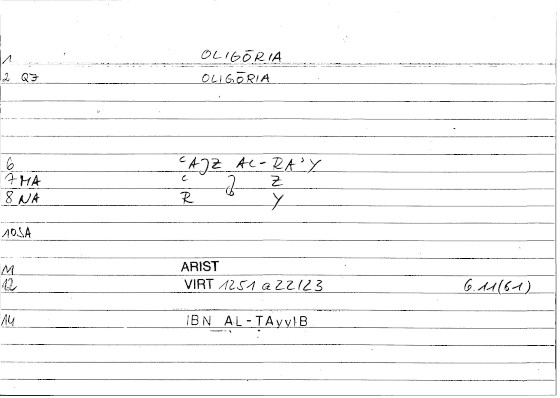 1 OLIGŌRIA
2 QZ OLIGŌRIA
6 ʿAJZ AL-RAʾY
7 MA ʿ J Z
8 NA R Y
10 SA
M ARIST
12 VIRT 1251 a 22/23 6.11(61)
14 IBN AL-ṬAyyIB